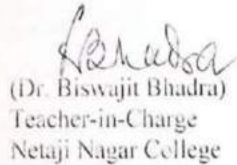 BBhadra
(Dr. Biswajit Bhadra)
Teacher-in-Charge
Netaji Nagar College